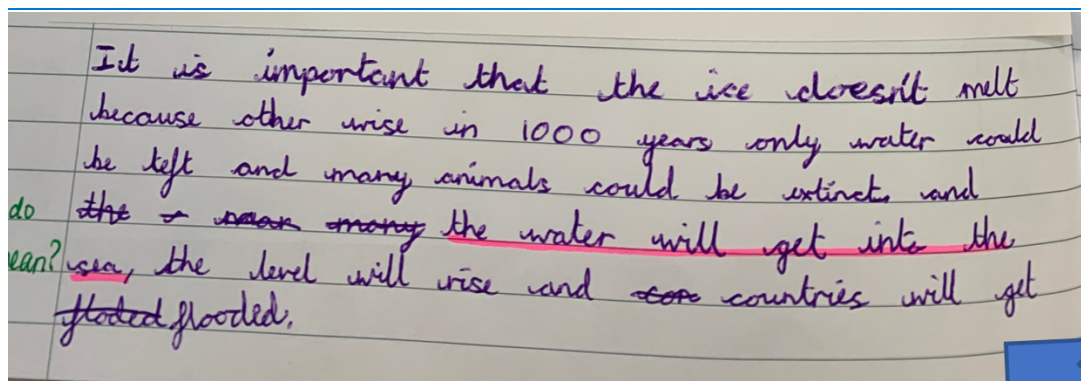 It is important that the ice doesn't melt
because other wise in 1000 years only water could
be left and many animals could be extinct, and
do the many the water will get into the
ean? sea, the level will rise and countries will get
floded flooded.